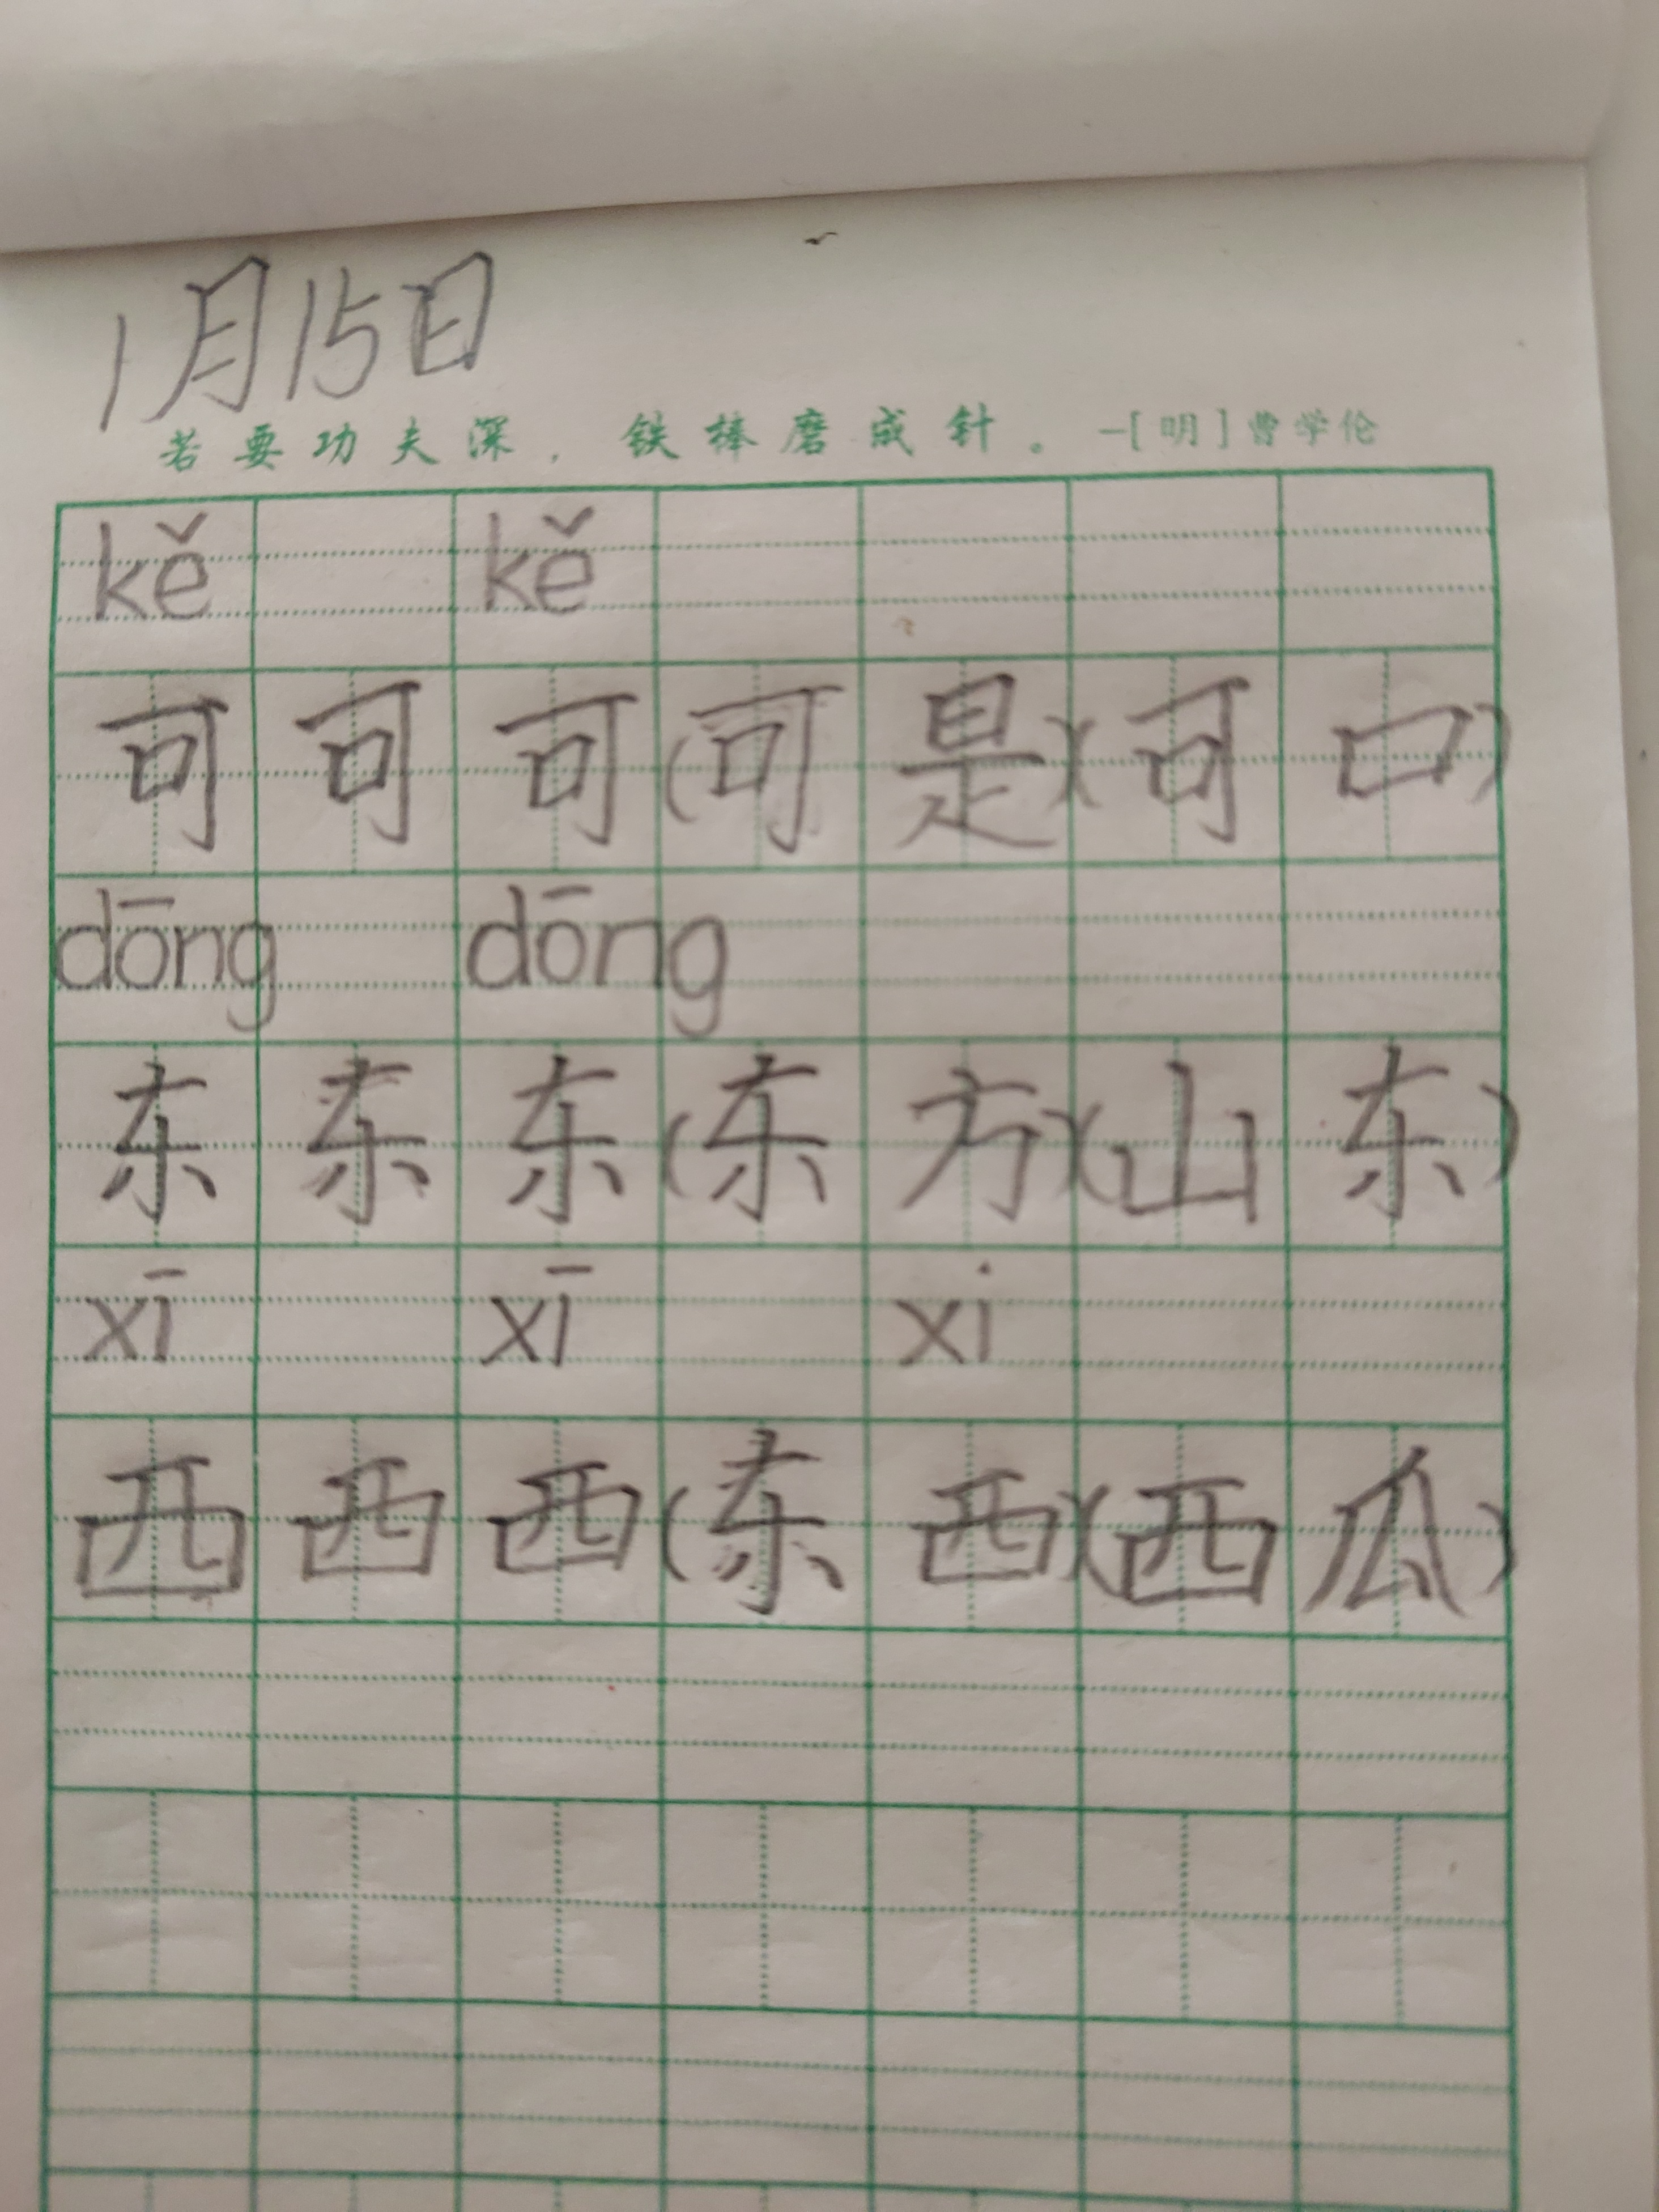 1月15日
若要功夫深，铁棒磨成针。—[明]曹学伦
kě kě
可可可(可是)(可口)
dōng dōng
东东东(东方)(山东)
xī xī xi
西西西(东西)(西瓜)